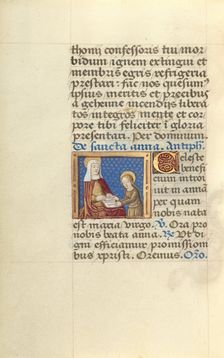 thonij confessoris tui mor
bidum ignem extingui et
membris egris refrigeria
prestari: fac nos quesumꝰ
ipsius meritis et precibus
a gehenne incendijs libera
tos integros mente et cor
pore tibi feliciter ī gloria
presentari. Per dominum.
De sancta anna. Antiph̄.
Celeste
benefi
cium introi
uit in annā
per quam
nobis nata
est maria virgo. ℣. Ora pro
nobis beata anna. ℟. Vt di
gni efficiamur promissioni
bus xpristi. Oremus. Oꝛo.